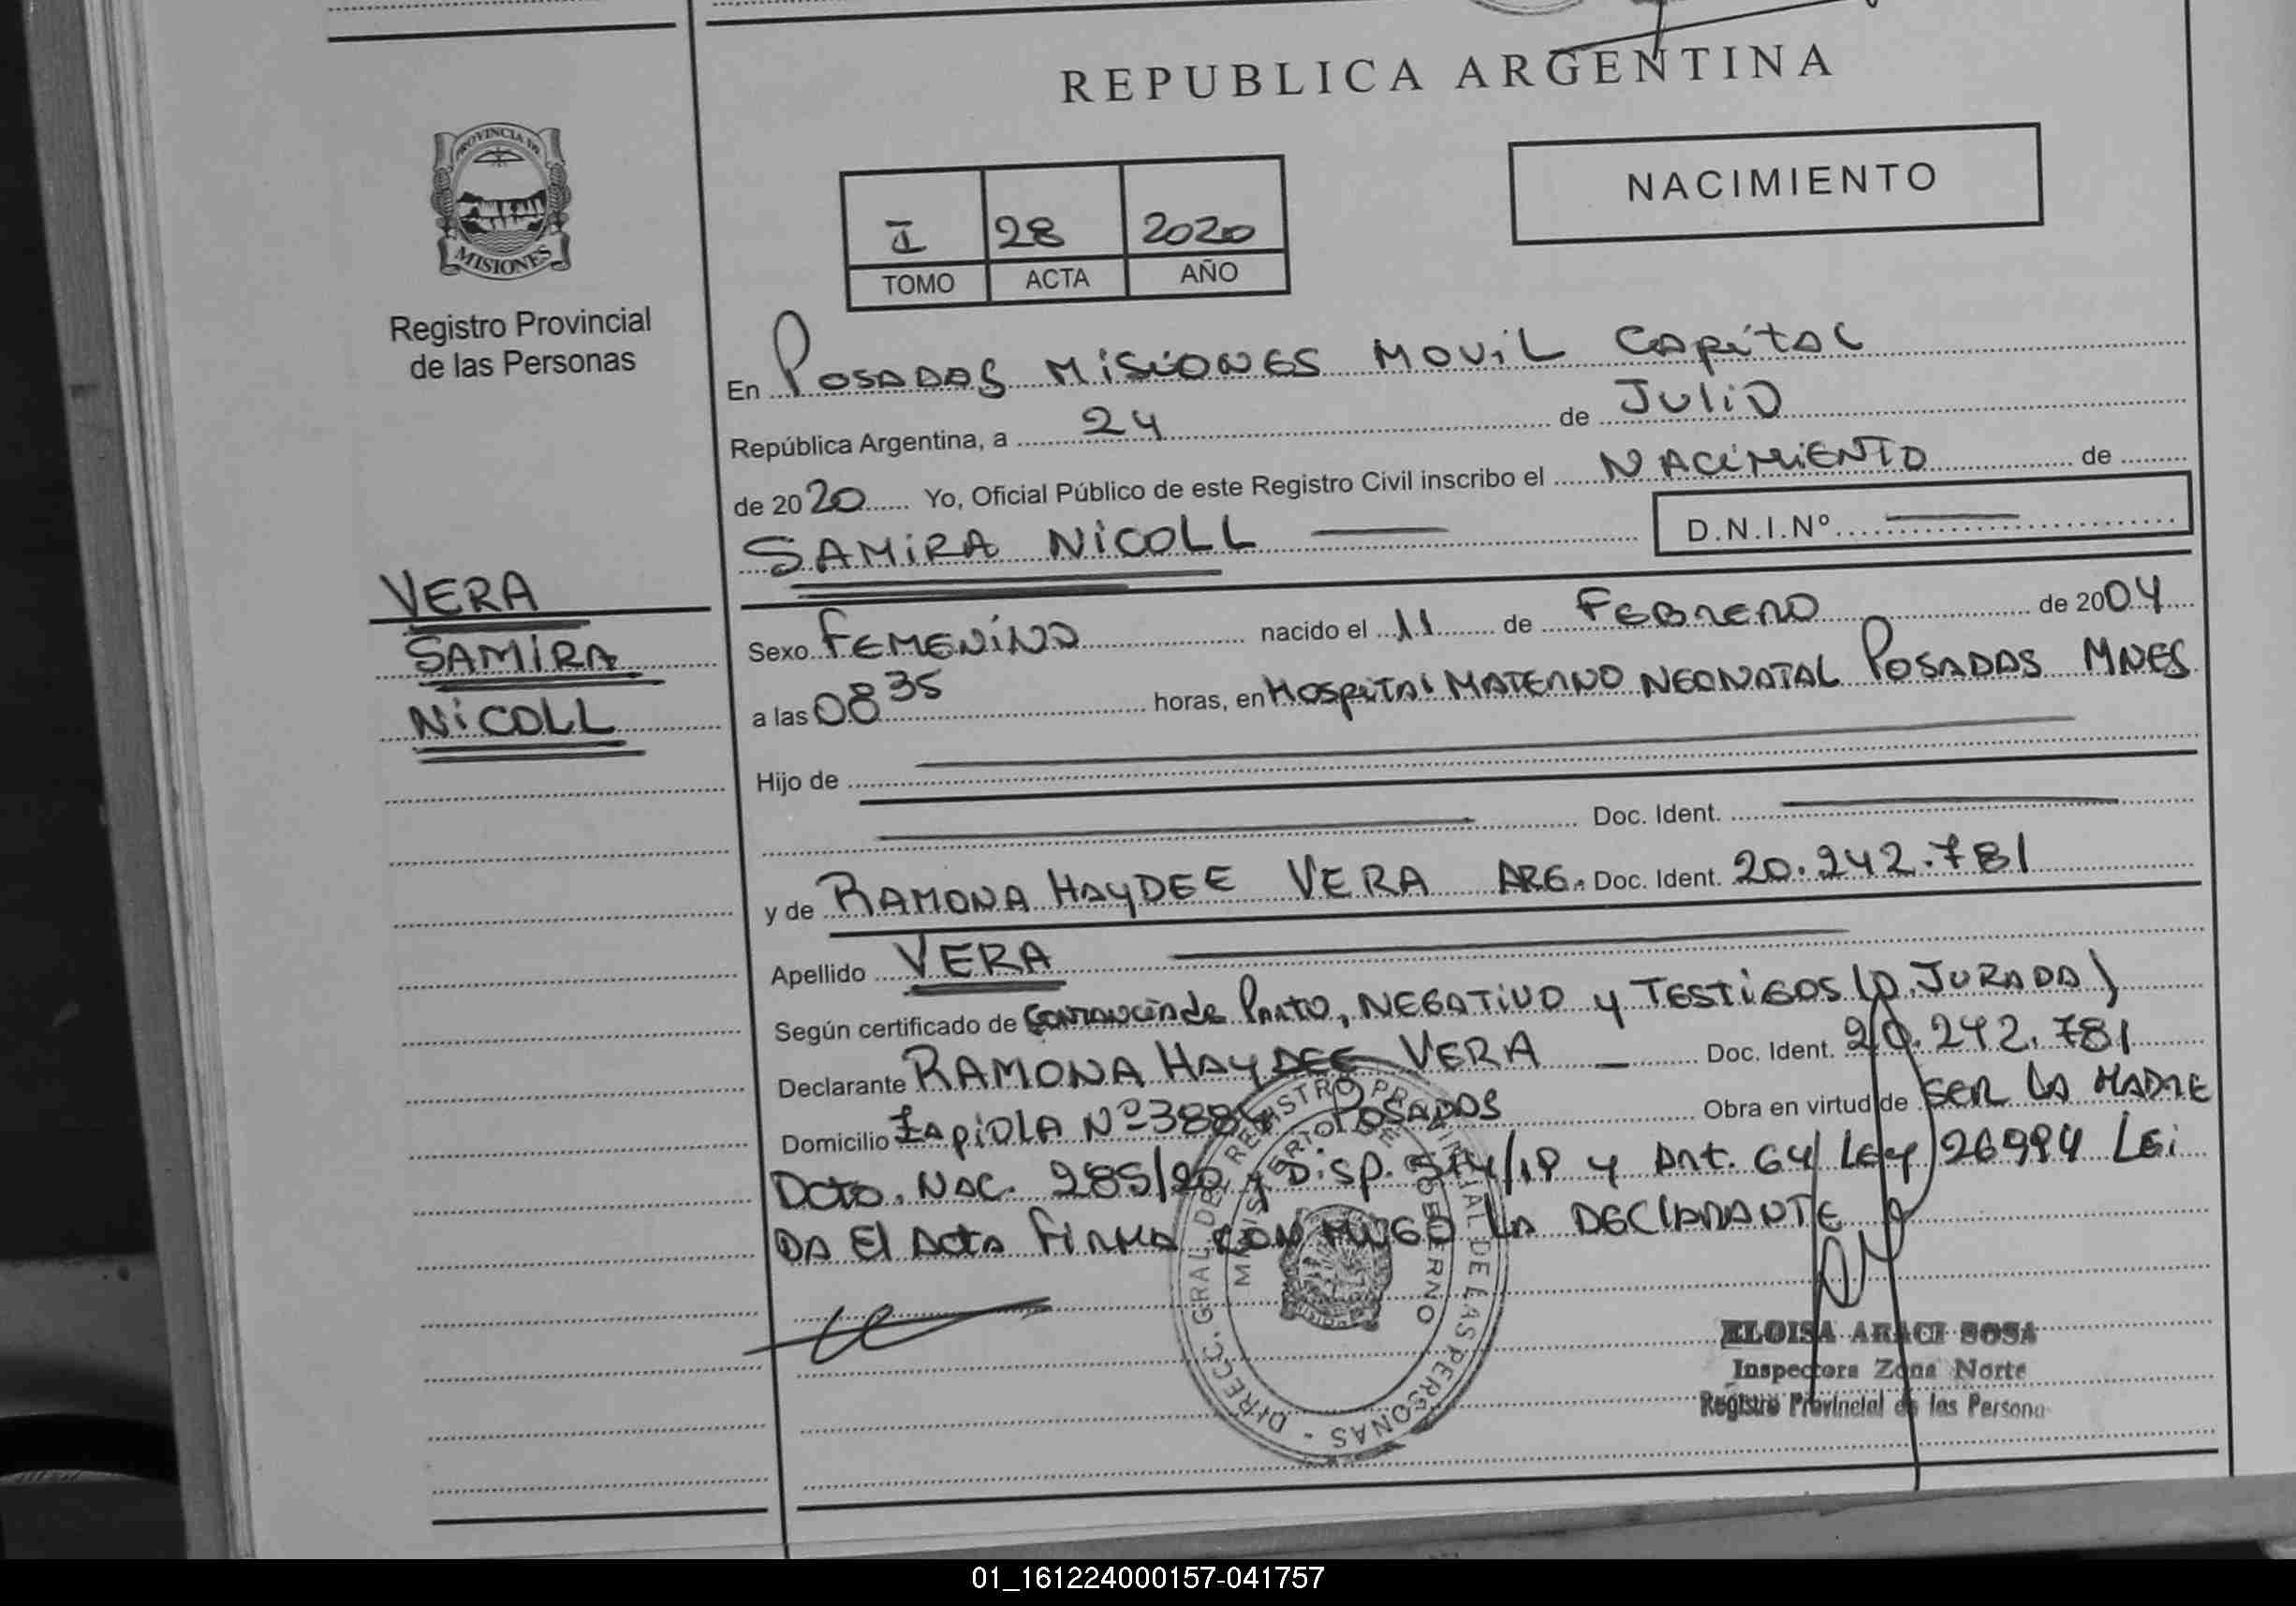 REPUBLICA ARGENTINA
PROVINCIA DE
MISIONES
Registro Provincial
de las Personas
NACIMIENTO
I 28 2020
TOMO ACTA AÑO
En POSADAS MISIONES MOVIL CAPITAL
República Argentina, a 24 de JULIO
de 2020 Yo, Oficial Público de este Registro Civil inscribo el NACIMIENTO de
SAMIRA NICOLL D.N.I.Nº
VERA
SAMIRA
NICOLL
Sexo FEMENINO nacido el 11 de FEBRERO de 2004
a las 08 35 horas, en HOSPITAL MATERNO NEONATAL POSADAS MNES
Hijo de
Doc. Ident.
y de RAMONA HAYDEE VERA ARG. Doc. Ident. 20.242.781
Apellido VERA
Según certificado de de PARTO, NEGATIVO y TESTIGOS (D. JURADA)
Declarante RAMONA HAYDEE VERA Doc. Ident. 20.242.781
Domicilio ZAPIOLA Nº POSADAS Obra en virtud de SER LA MADRE
Dcto. Nac. 285/20 y Disp. y Art. 64 Ley 26994 LEI
DA El Acta FIRMA CONMIGO LA DECLARANTE
DIRECC. GRAL. DEL REGISTRO PROVINCIAL DE LAS PERSONAS -
MINISTERIO DE GOBIERNO
ELOISA ARACI SOSA
Inspectora Zona Norte
Registro Provincial de las Persona
01_161224000157-041757